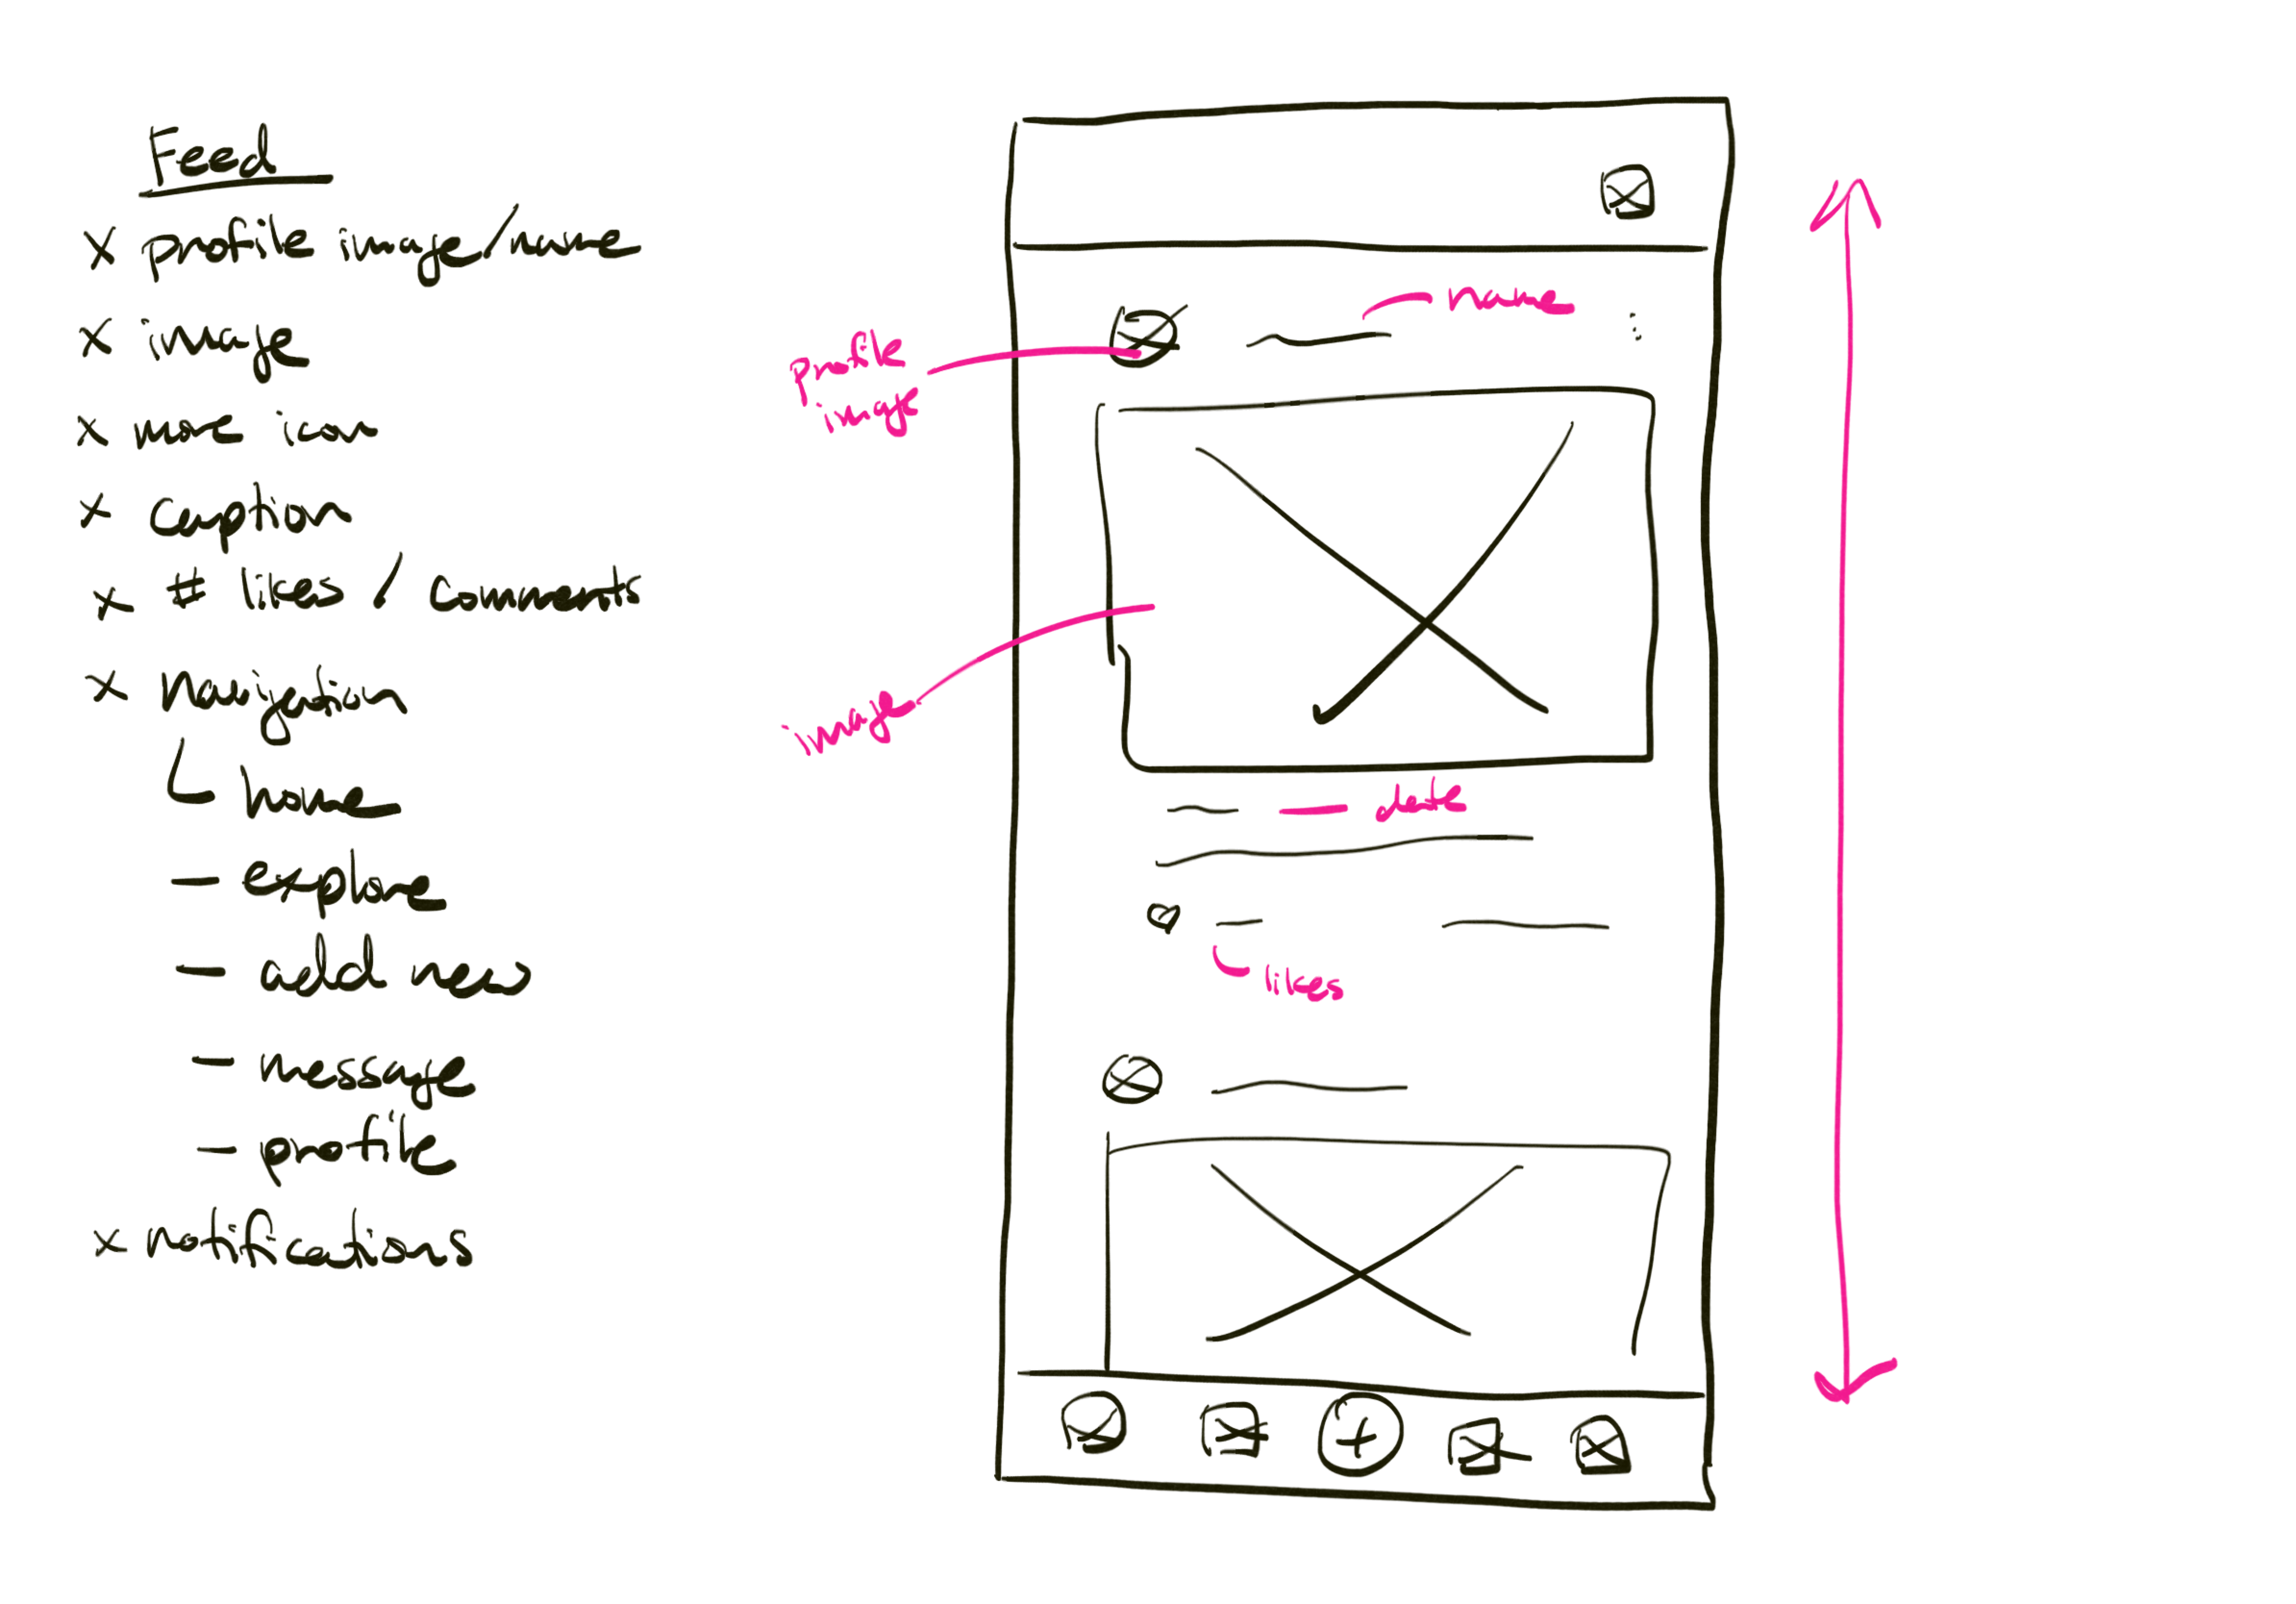 Feed
x profile image/name
x image
x more icon
x caption
x # likes / comments
x navigation
home
– explore
– add new
– message
– profile
x notifications
name
profile
image
image
date
likes